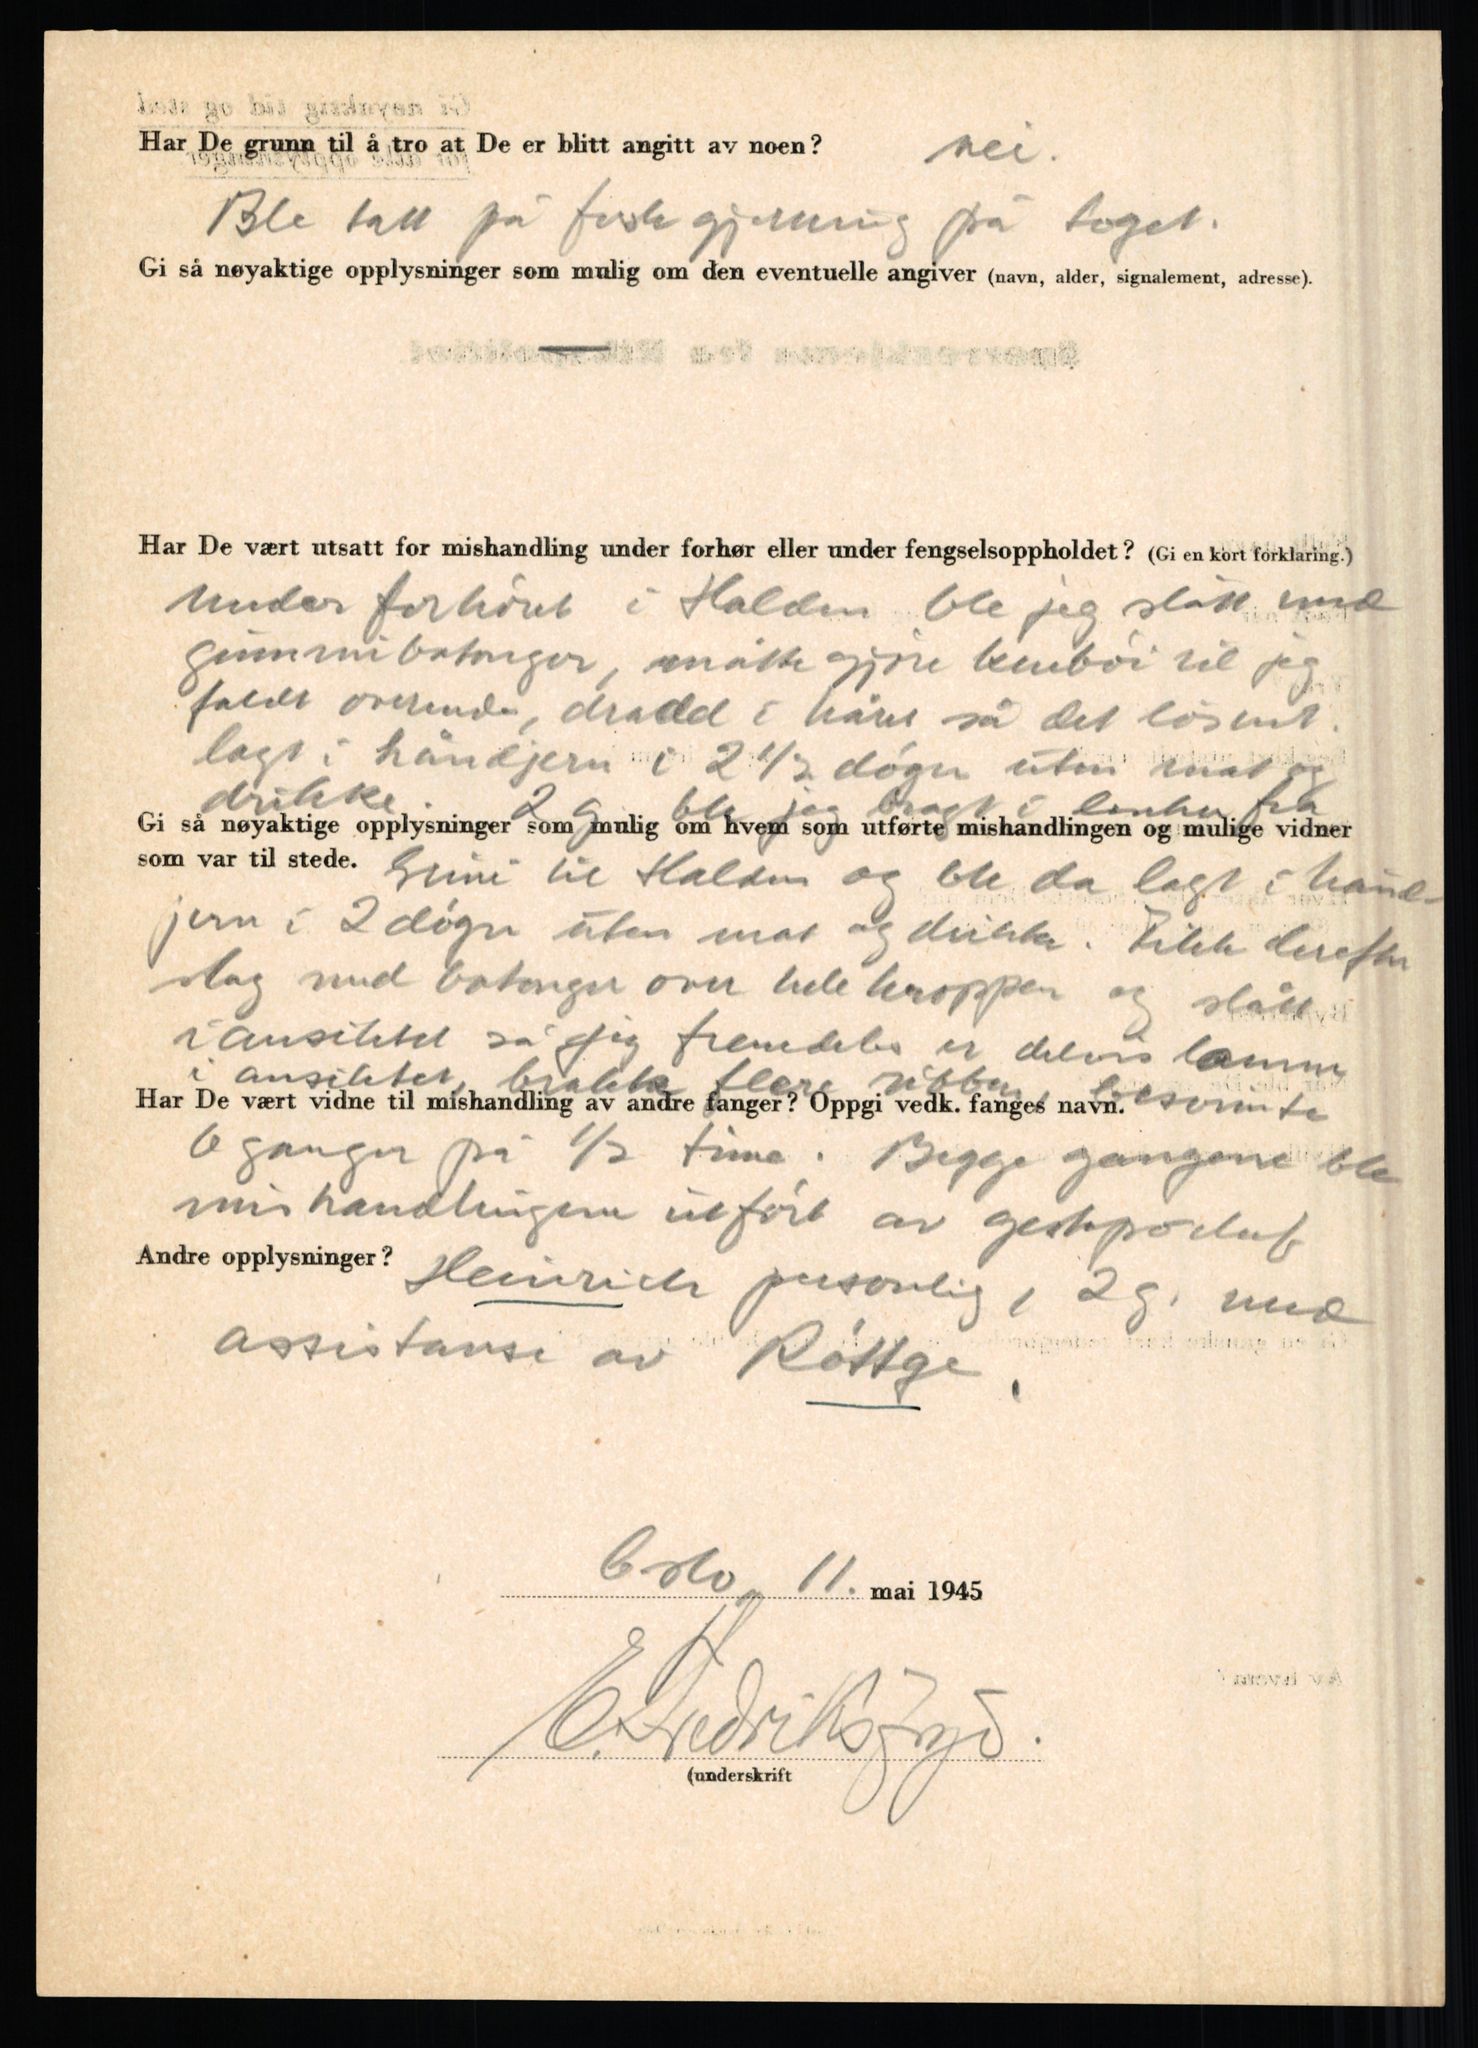 Har De grunn til å tro at De er blitt angitt av noen? nei.
Ble tatt på fersk gjerning på toget.
Gi så nøyaktige opplysninger som mulig om den eventuelle angiver (navn, alder, signalement, adresse).
Har De vært utsatt for mishandling under forhør eller under fengselsoppholdet? (Gi en kort forklaring.)
Under forhöret i Halden ble jeg slått med
gummibatonger, måtte gjøre knebøi til jeg
faldt overende, dradd i håret så det løsnet.
lagt i håndjern i 2 1/2 døgn uten mat og
drikke. 2 g ble jeg bragt i lenker fra
Gi så nøyaktige opplysninger som mulig om hvem som utførte mishandlingen og mulige vidner
som var til stede. Grini til Halden og ble da lagt i hånd-
jern i 2 døgn uten mat og drikke. Fikk derefter
slag med batonger over hele kroppen og slått
i ansiktet så jeg fremdeles er delvis lam
i ansiktet, brakk flere ribben, besvimte
Har De vært vidne til mishandling av andre fanger? Oppgi vedk. fanges navn.
6 ganger på 1/2 time. Begge gangene ble
mishandlingene utført av gestaposjef
Andre opplysninger? Heinrich personlig, 2 g. med
assistanse av Röttge.
Oslo, 11. mai 1945
E. Fredriksfryd.
(underskrift